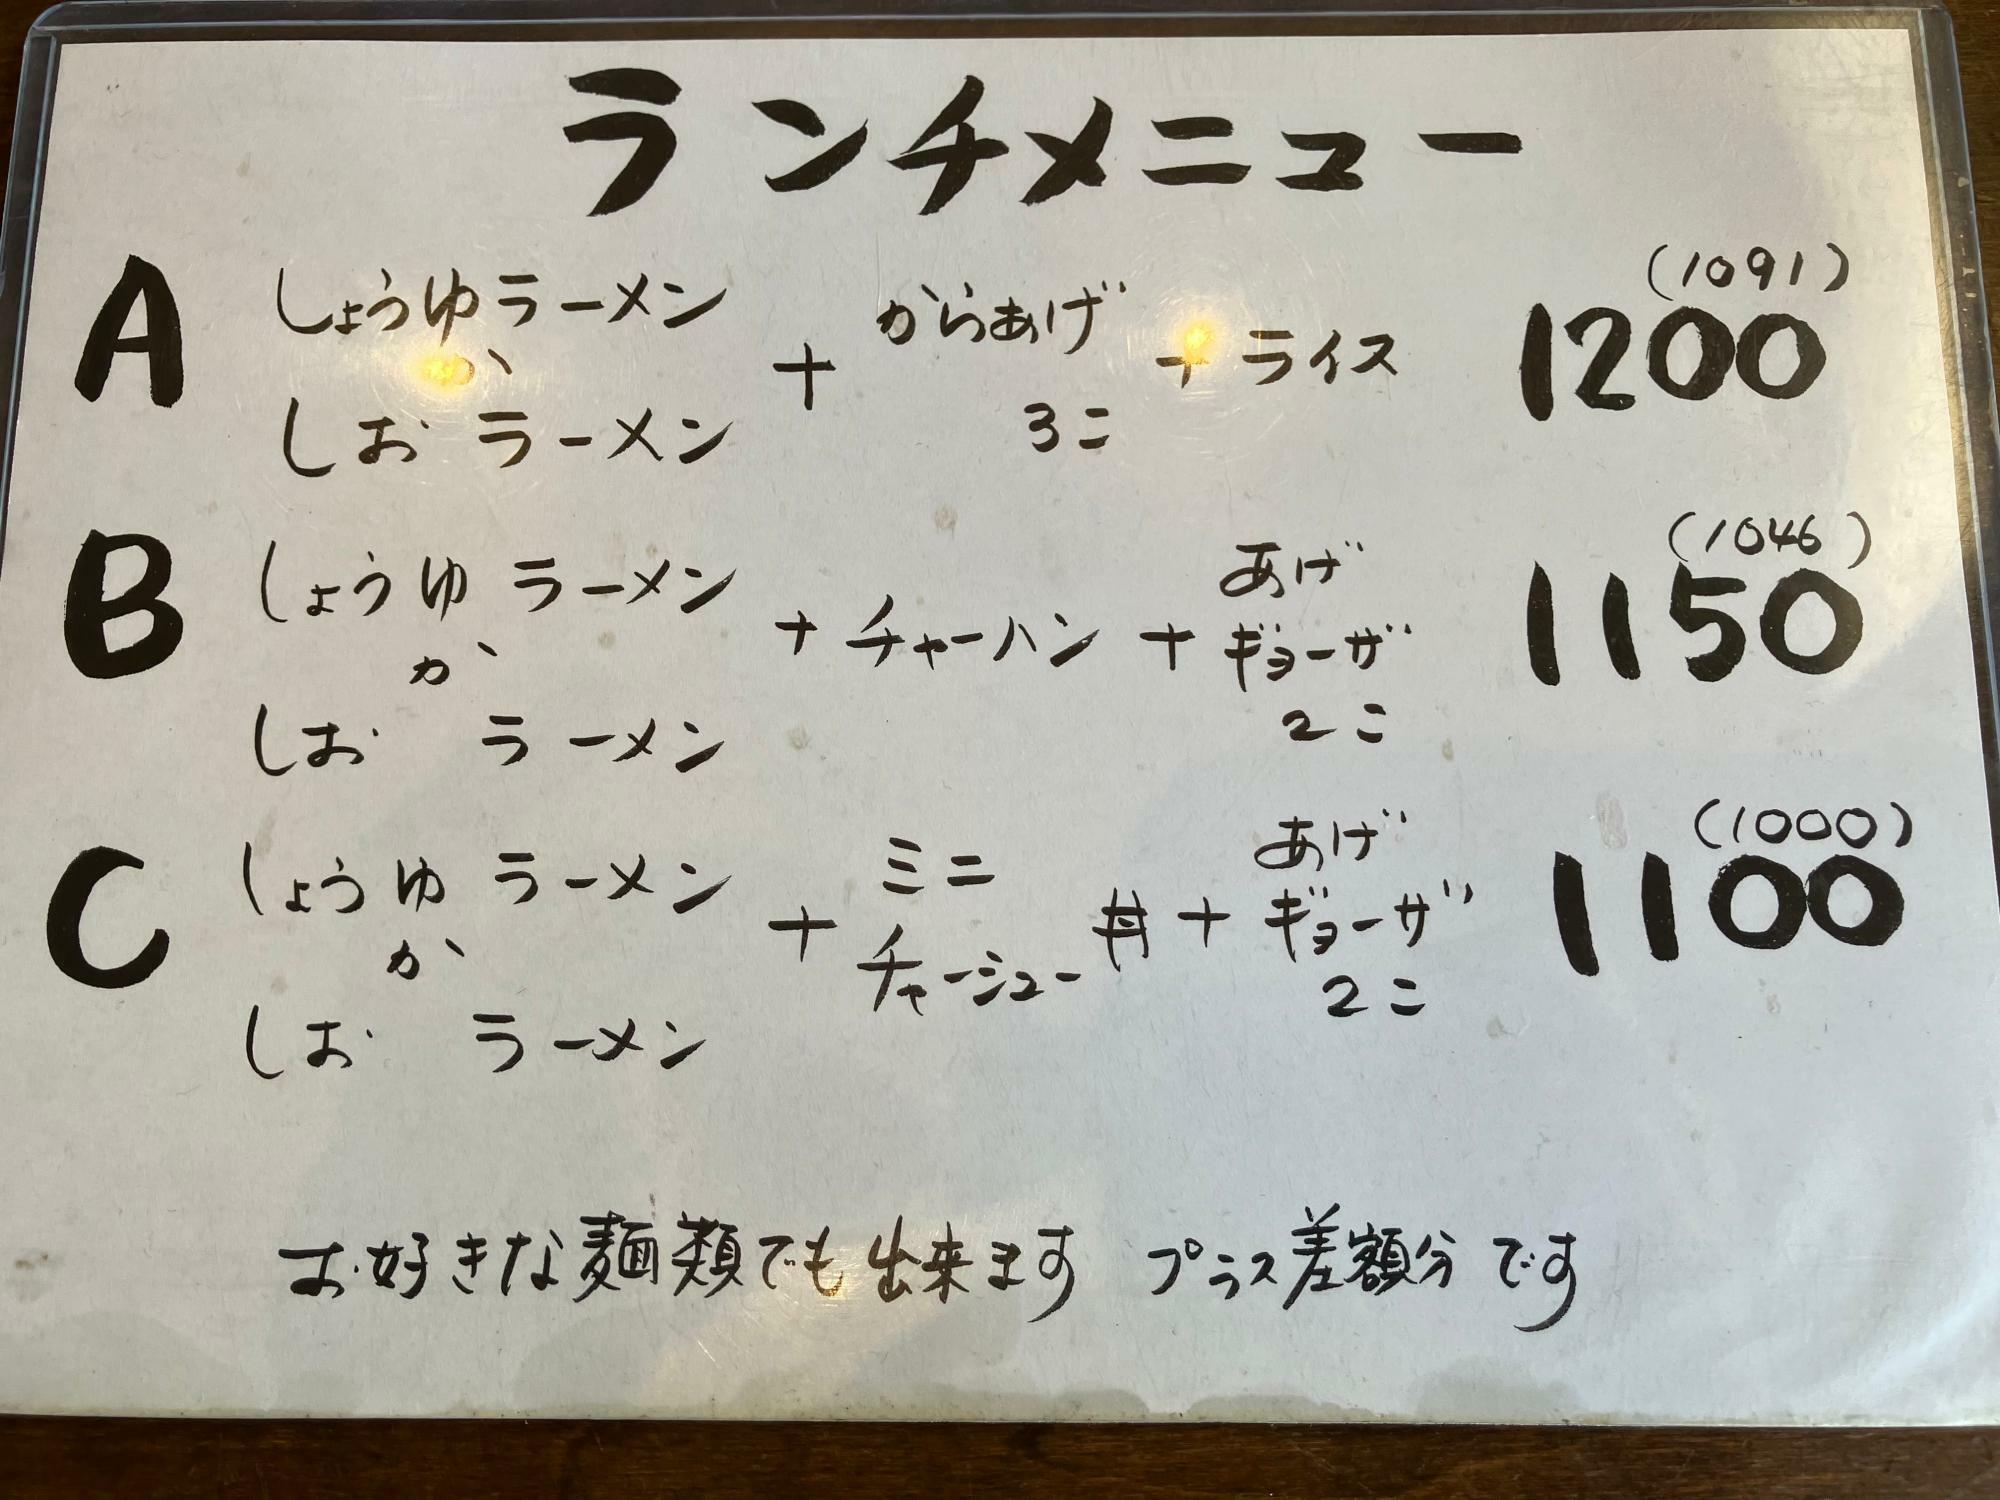 ランチメニュー
A しょうゆラーメン か しおラーメン + からあげ 3こ + ライス (1091) 1200
B しょうゆラーメン か しおラーメン + チャーハン + あげギョーザ 2こ (1046) 1150
C しょうゆラーメン か しおラーメン + ミニチャーシュー丼 + あげギョーザ 2こ (1000) 1100
お好きな麺類でも出来ます プラス差額分です